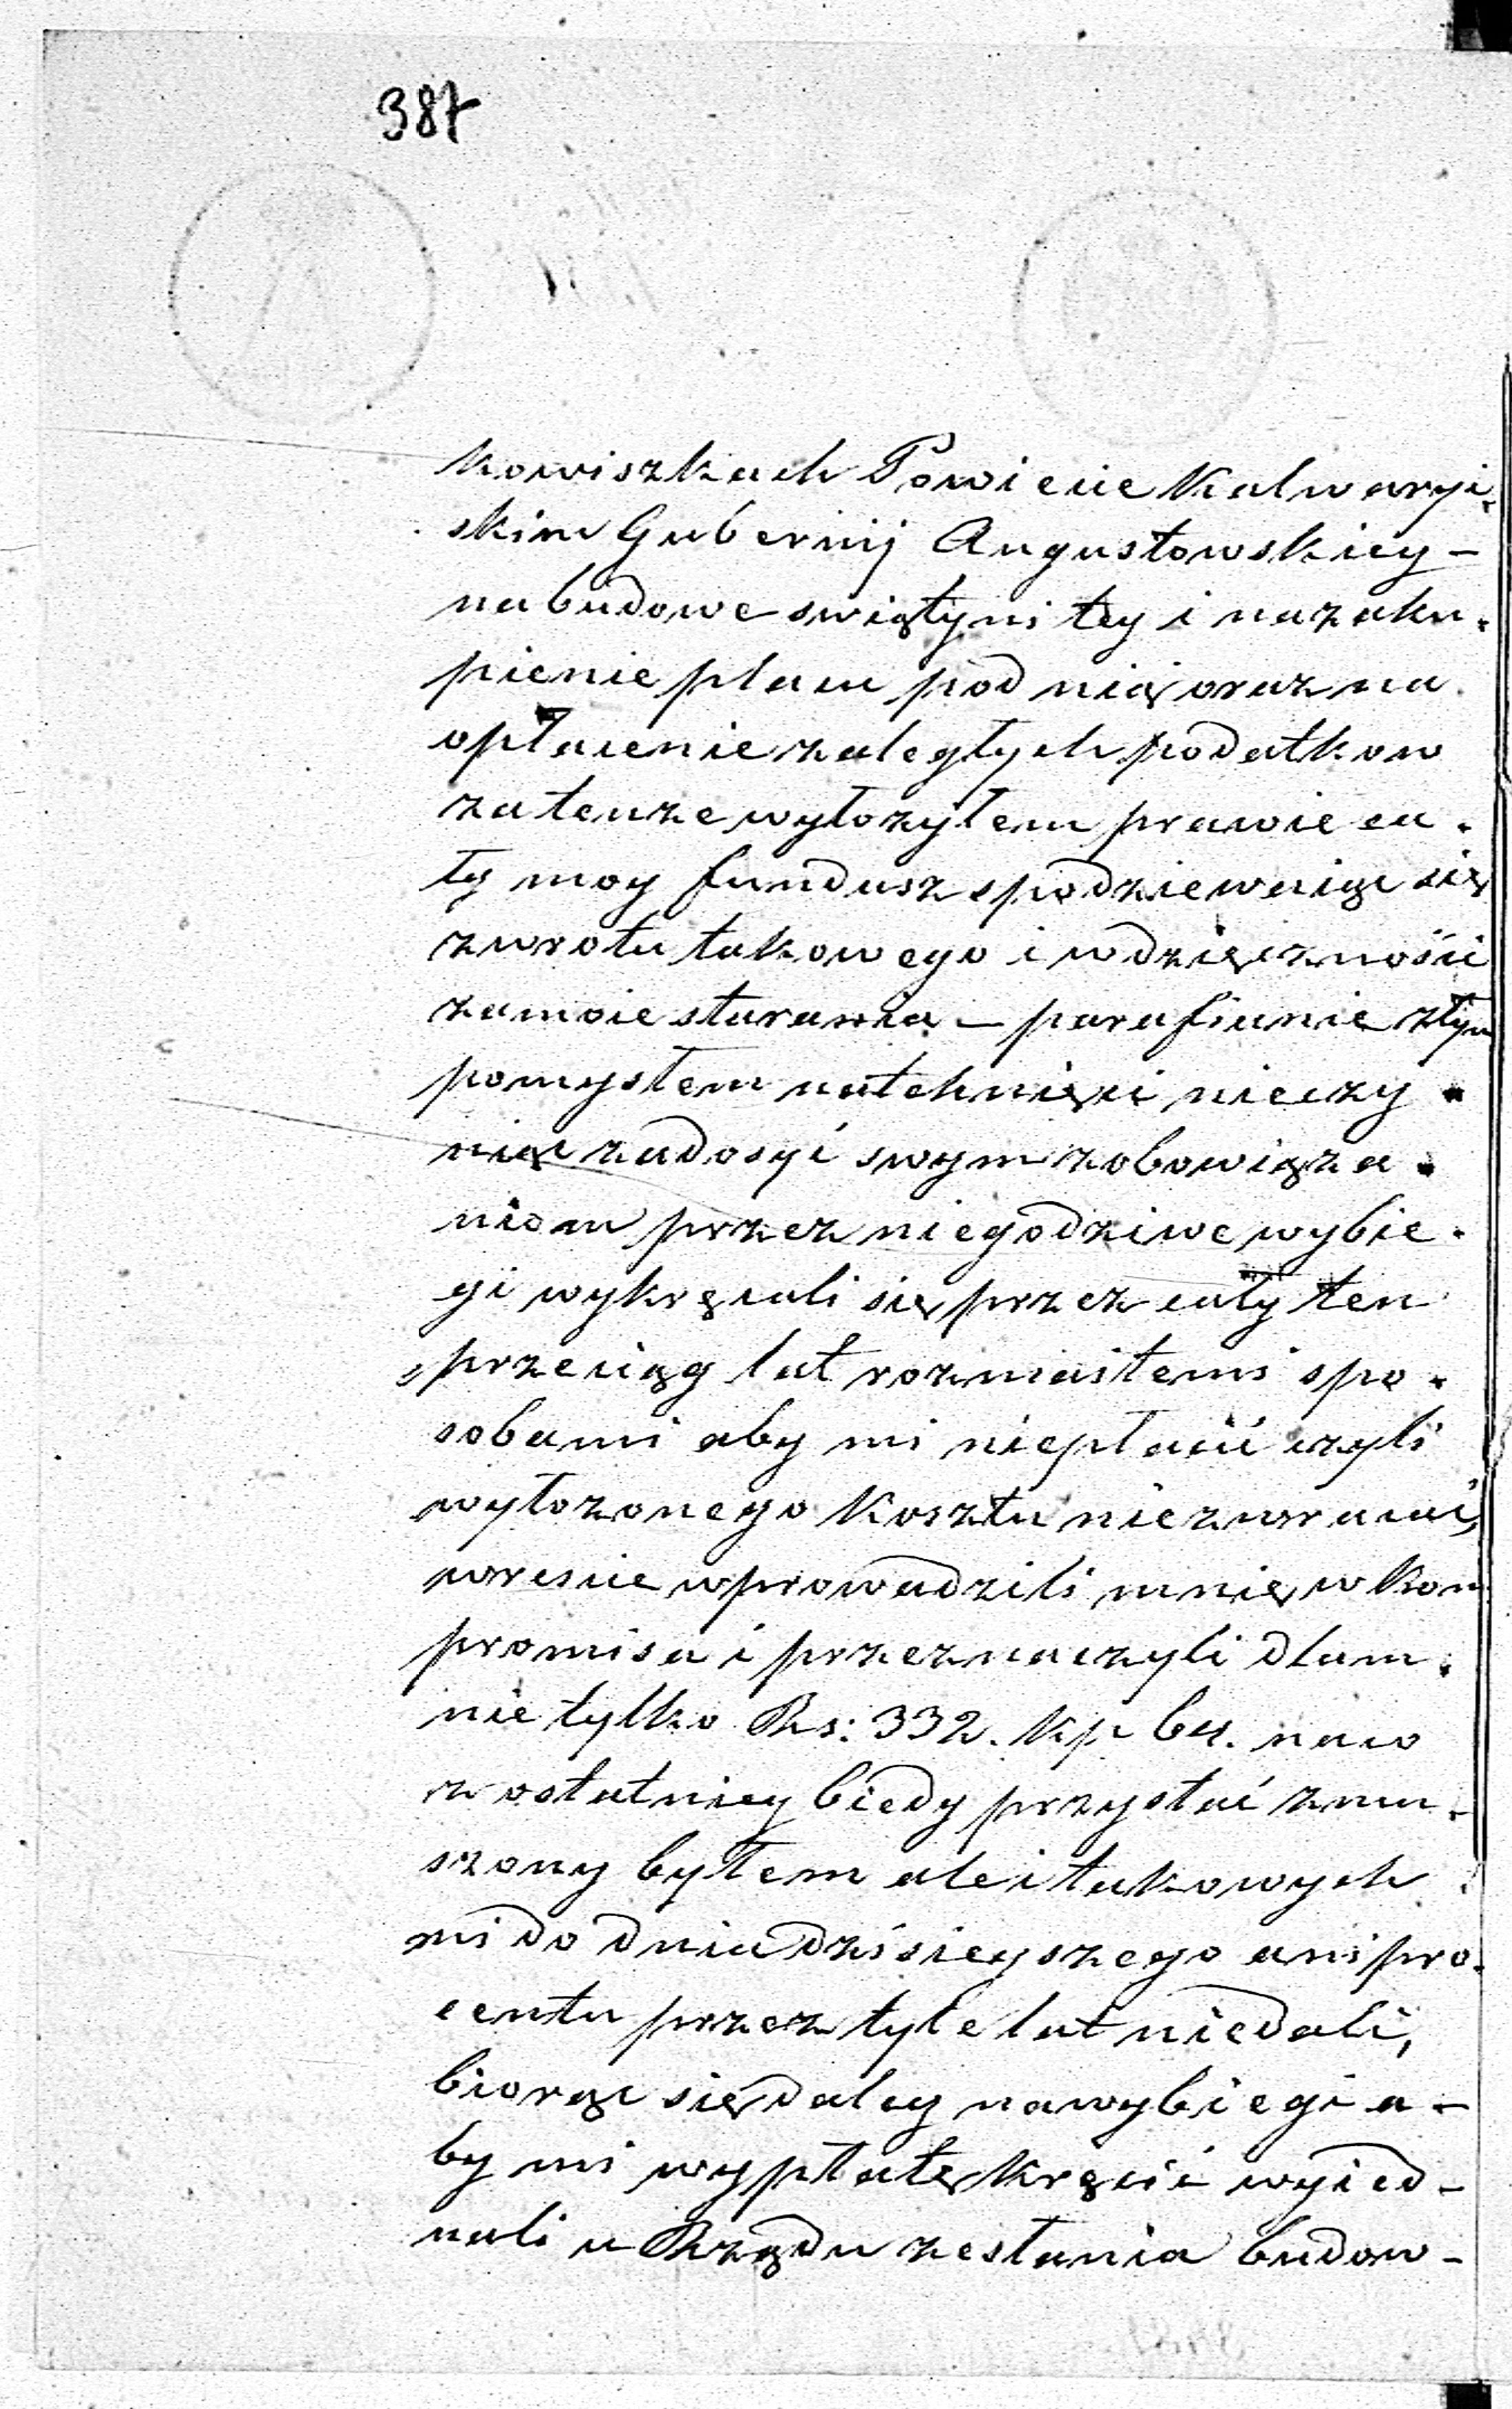 387
kowiszkach Powiecie Kalwaryi.
skim Gubernij Augustowskiey –
na budowe swiątyni tey i na zaku.
pienie placu pod nią oraz na
opłacenie zaległych podatkow
za tenze wyłozyłem prawie ca.
ły moy fundusz spodziewaiąc się
zwrotu takowego i wdzięczności
za moie starania – parafianie złym
pomysłem natchnięci nieczy.
niąc zadosyć swym zobowiąza.
niom przez niegodziwe wybie.
gi wykręcali się przez cały ten
przeciąg lat rozmaitemi spo.
sobami aby mi niepłacić czyli
wyłozonego Kosztu niezwracać,
wrescie wprowadzili mnię w Kom
promisa i przeznaczyli dlam.
nie tylko Rs: 332. Kp 64. na co
z ostatniey biedy przystać zmu.
szony byłem ale i takowych
mi do dnia dzisieyszego ani pro.
centu przez tyle lat niedali,
biorąc się daley na wybiegi a –
by mi wypłatę kręcić wyied –
nali u Rządu zesłania budow –